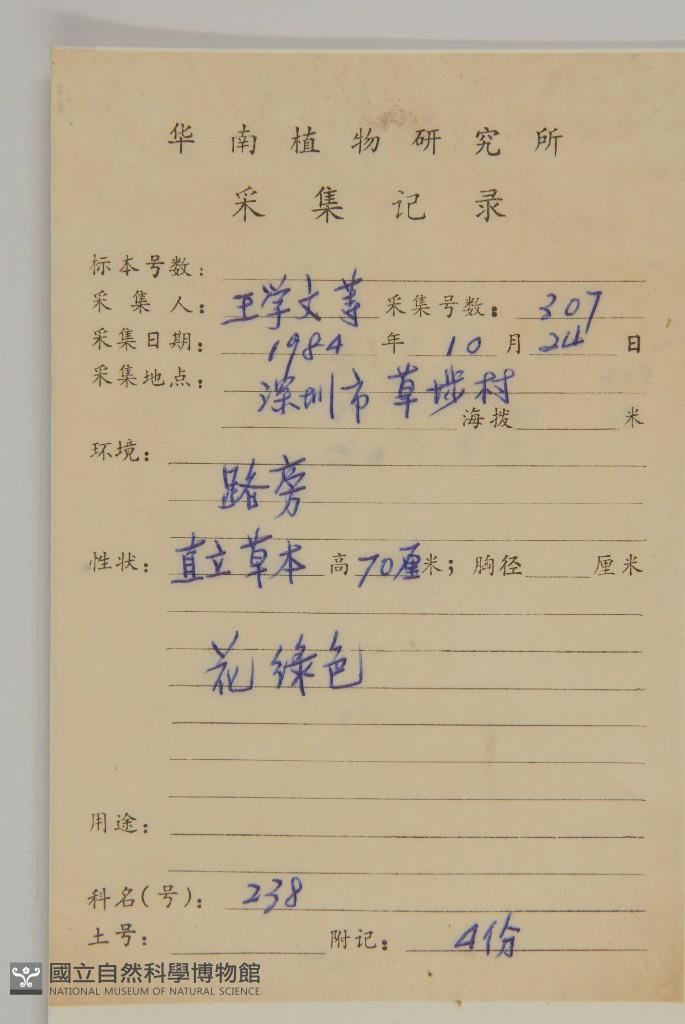 华南植物研究所
采集记录
标本号数：
采集人：王学文等 采集号数：307
采集日期：1984年10月24日
采集地点：深圳市草埗村
海拨 米
环境：
路旁
性状：直立草本 高70厘米；胸径 厘米
花绿色
用途：
科名(号)：238
土号： 附记：4份
國立自然科學博物館
NATIONAL MUSEUM OF NATURAL SCIENCE